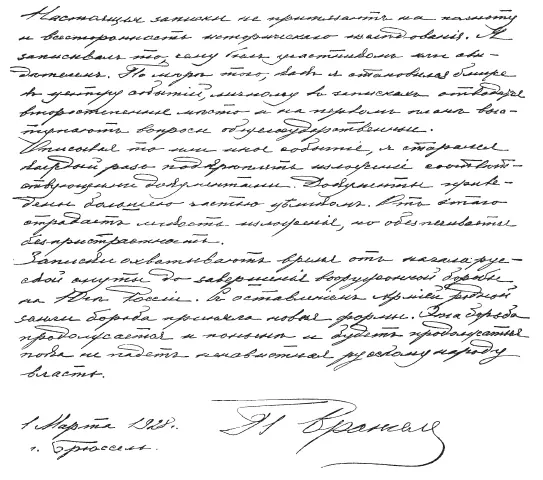 Настоящія записки не притязаютъ на полноту
и всесторонность историческаго изслѣдованія. Я
записывалъ то, чему былъ участникомъ или сви-
дѣтелемъ. По мѣрѣ того, какъ я становился ближе
къ центру событій, личному въ запискахъ отводится
второстепенное мѣсто и на первый планъ выс-
тупаютъ вопросы общегосударственные.
Описывая то или иное событіе, я старался
каждый разъ подкрѣплять изложеніе соотвѣт-
ствующими документами. Документы приве-
дены большею частью цѣликомъ. Отъ этого
страдаетъ живость изложенія, но обезпечивается
безпристрастность.
Записки охватываютъ время отъ начала рус-
ской смуты до завершенія вооруженной борьбы
на Югѣ Россіи. Съ оставленіемъ Арміей родной
земли борьба приняла новыя формы. Эта борьба
продолжается и понынѣ и будетъ продолжаться
пока не падетъ ненавистная русскому народу
власть.
1 Марта 1928 г.
г. Брюссель.
П Врангель